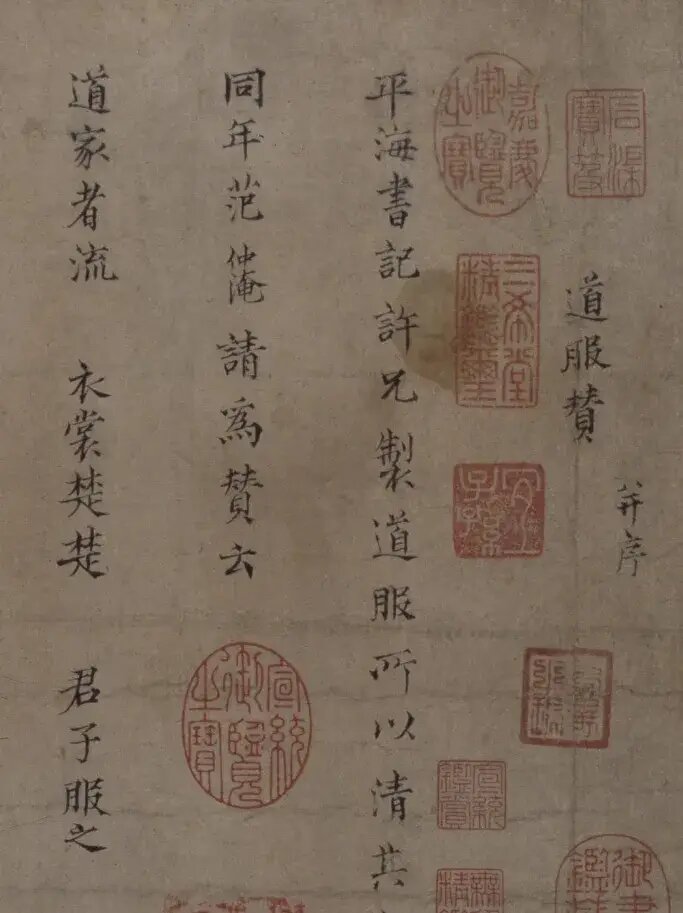 道服賛 并序
嘉慶御覽之寶
三希堂精鑑璽
宣統鑑賞
平海書記許兄製道服所以清其
同年范仲淹請爲賛云
宣統御覽之寶
道家者流 衣裳楚楚 君子服之